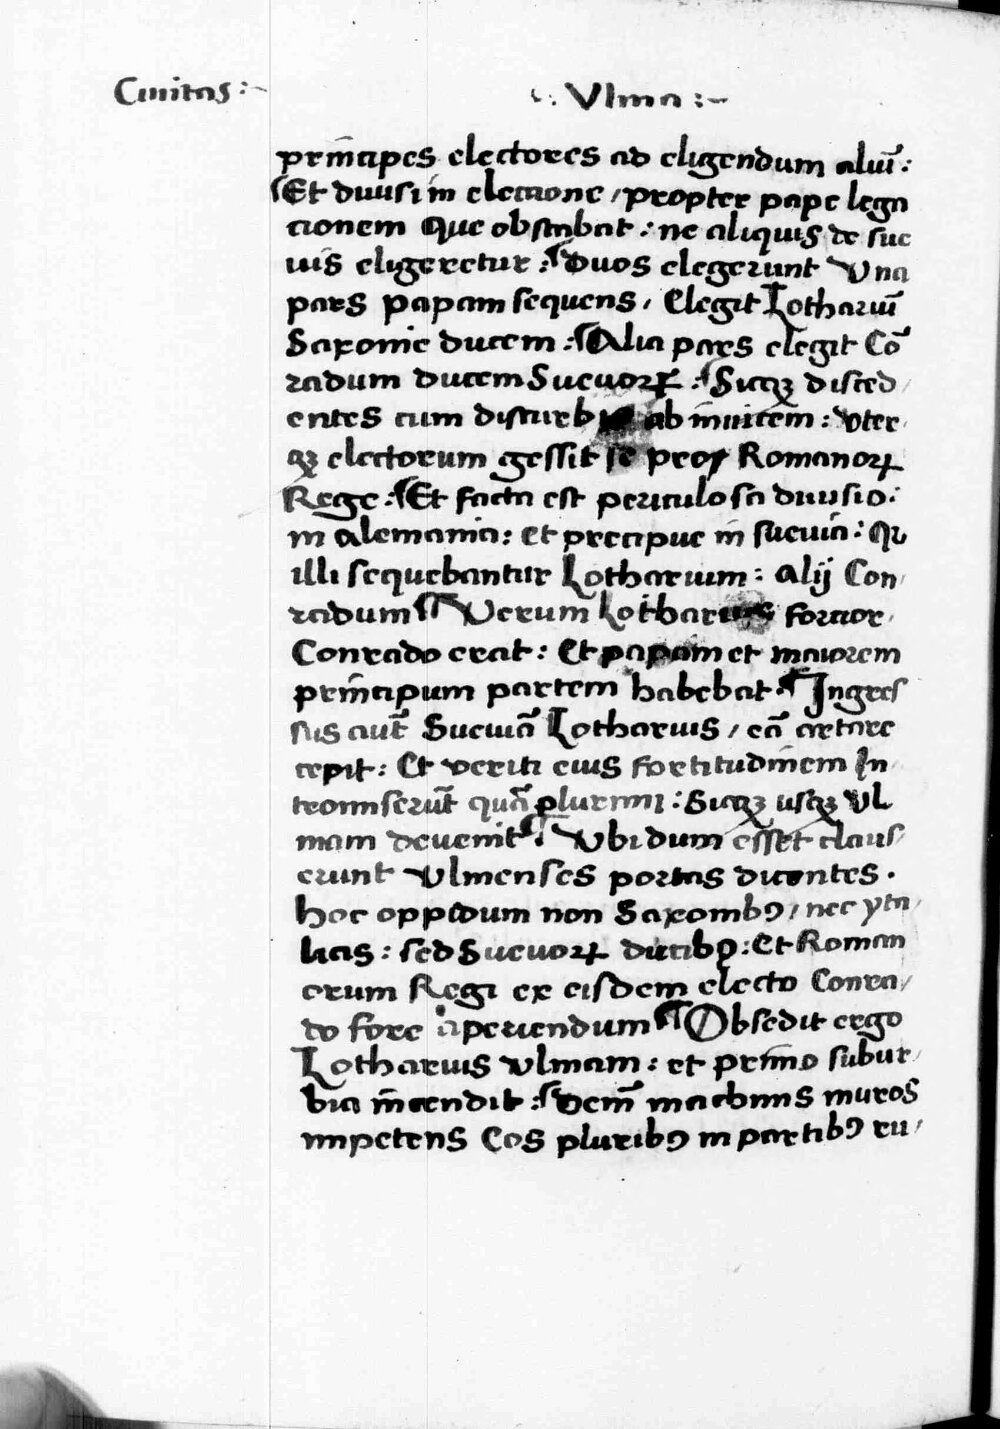 Ciuitas :~
∴ Vlma :~
prīncipes electores ad eligendum aliū :
¶Et diuisi īn electione / propter pape lega
cionem Que obstabat : ne aliquis de sue
uis eligeretur : ¶Duos elegerunt Vna
pars papam sequens / Elegit Lothariū
Saxonie ducem : ¶Alia pars elegit Cō
radum ducem Sueuorꝝ : ¶Sicqꝫ disced/
entes cum disturb ab īnuicem : vter/
qꝫ electorum gessit se pro Romanorꝝ
Rege : ¶Et facta est periculosa diuisio :
in alemania : et precipue īn sueuia : Qr
illi sequebantur Lotharium : alij Con/
radum ¶ Verum Lotharius forcior/
Conrado erat : Et papam et maiorem
prīncipum partem habebat . ¶ Ingres
sus autē Sueuiā Lotharius / eā artare
cepit : Et veriti eius fortitudīnem In/
tromiserūt quā plurimi : Sicqꝫ usqꝫ Vl
mam deuenit ¶ . Vbi dum esset claus/
erunt Vlmenses portas dicentes .
hoc oppidum non Saxonibꝰ / nec yta/
licis : sed Sueuorꝝ ducibꝰ : Et Roman
orum Regi ex eisdem electo Conra/
do fore aperiendum ¶ Obsedit ergo
Lotharius vlmam : et prīmo subur/
bia īncendit : ¶Demū machinis muros
impetens Eos pluribꝰ in partibꝰ ru/